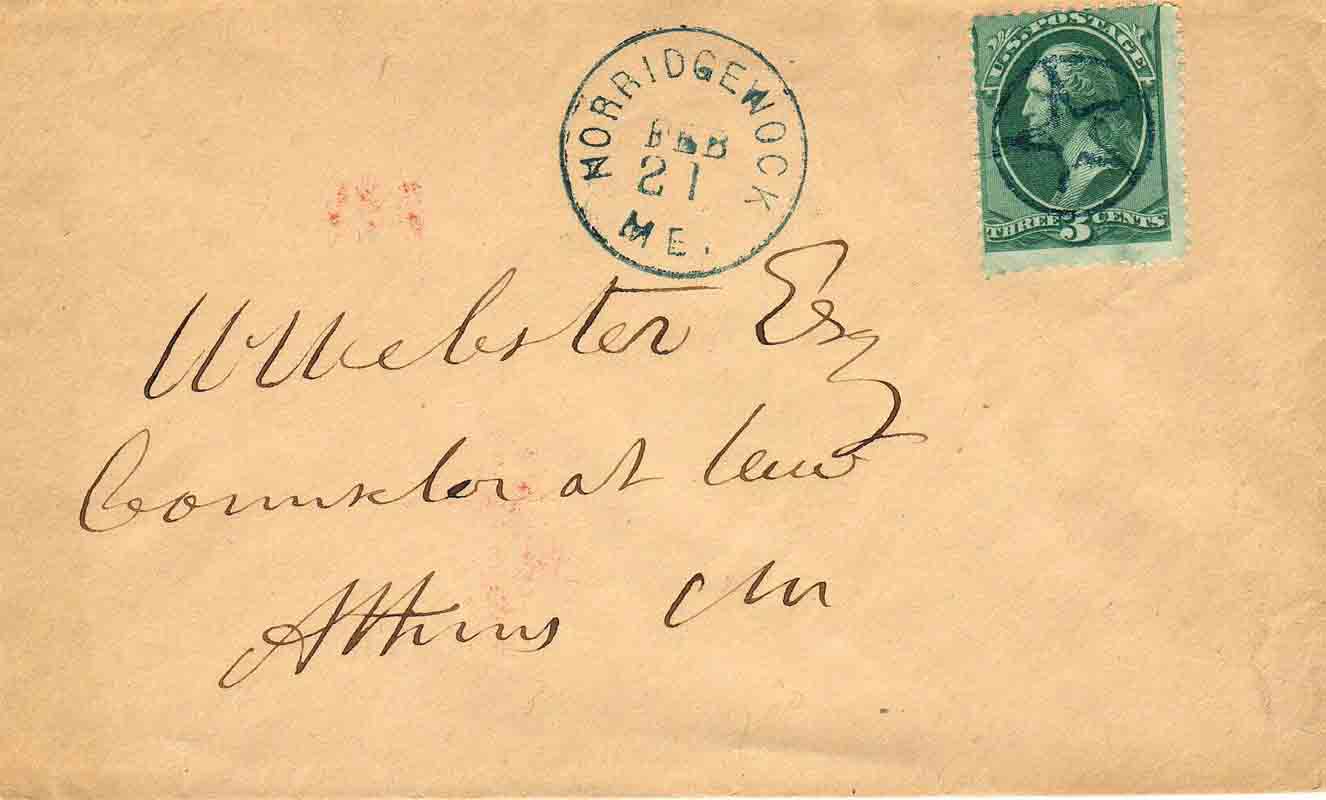 NORRIDGEWOCK
FEB
21
ME.
U.S. POSTAGE
THREE 3 CENTS
W Webster Esq
Counselor at Law
Athens Me